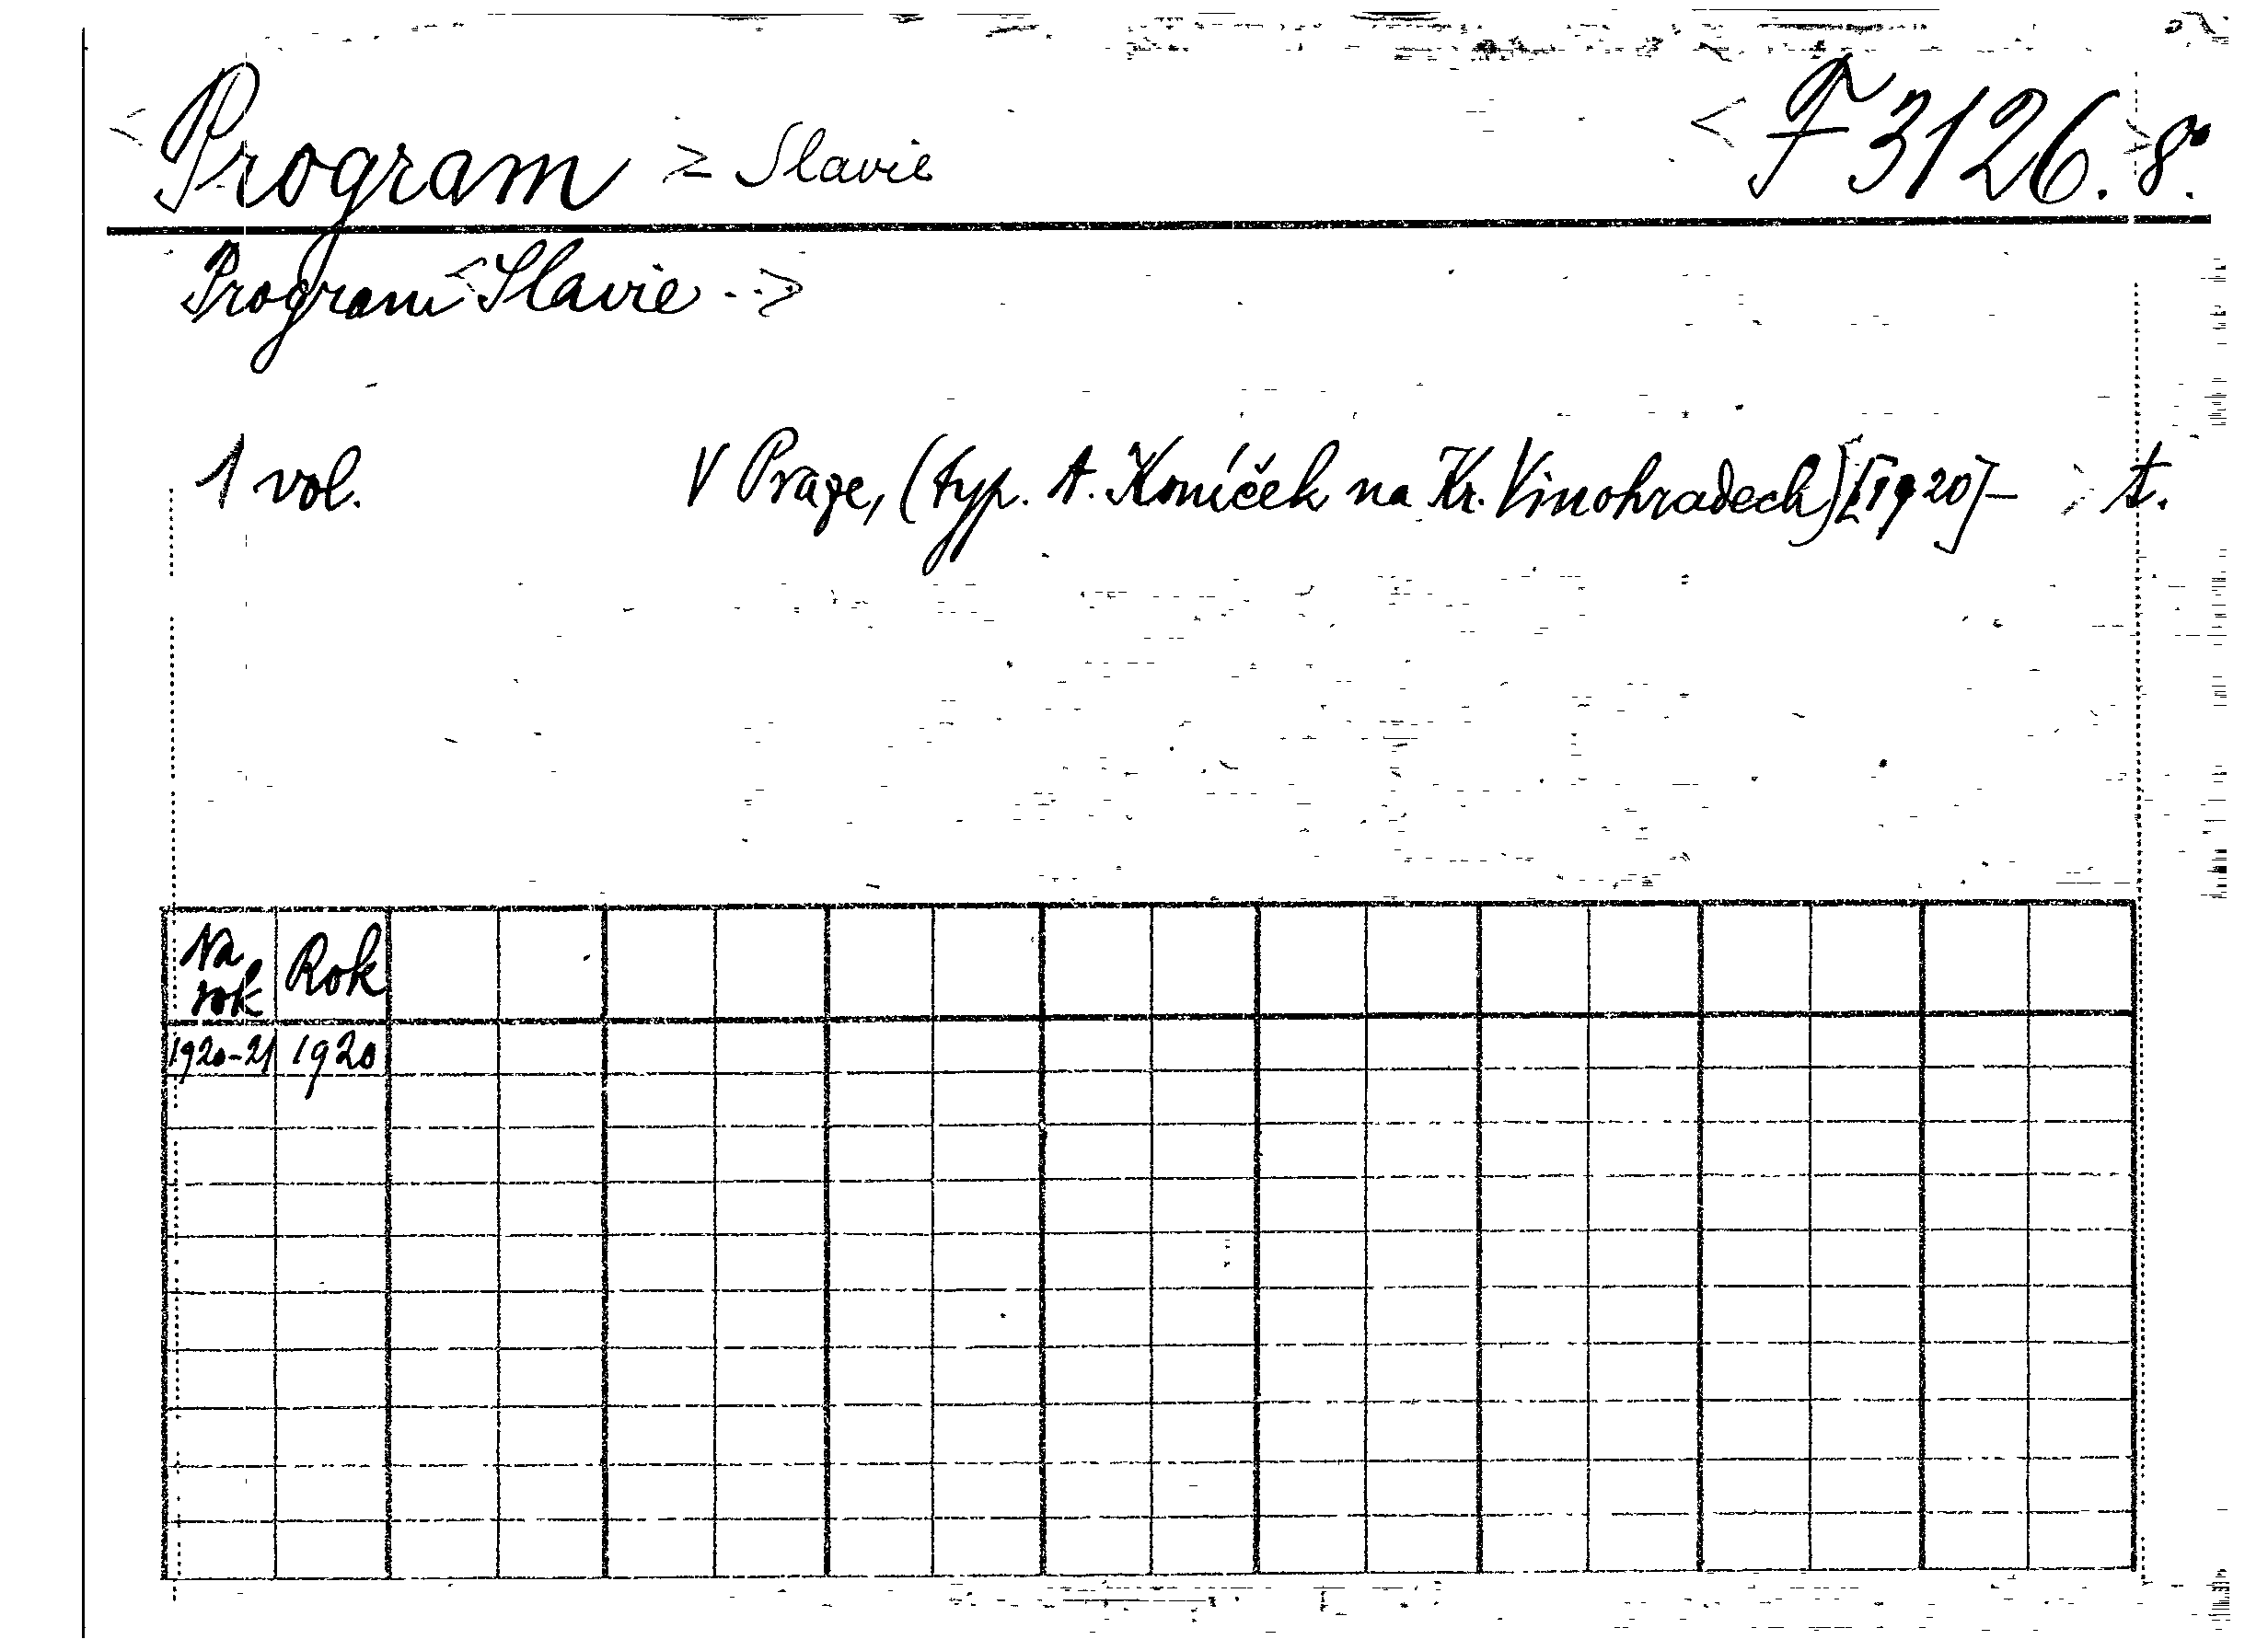 <Program> = Slavie <F 3126.>8°.
Program <Slavie...>
1 vol. V Praze, (typ. A. Koníček na Kr. Vinohradech) [1920]- ; t.
Na rok Rok
1920-21 1920